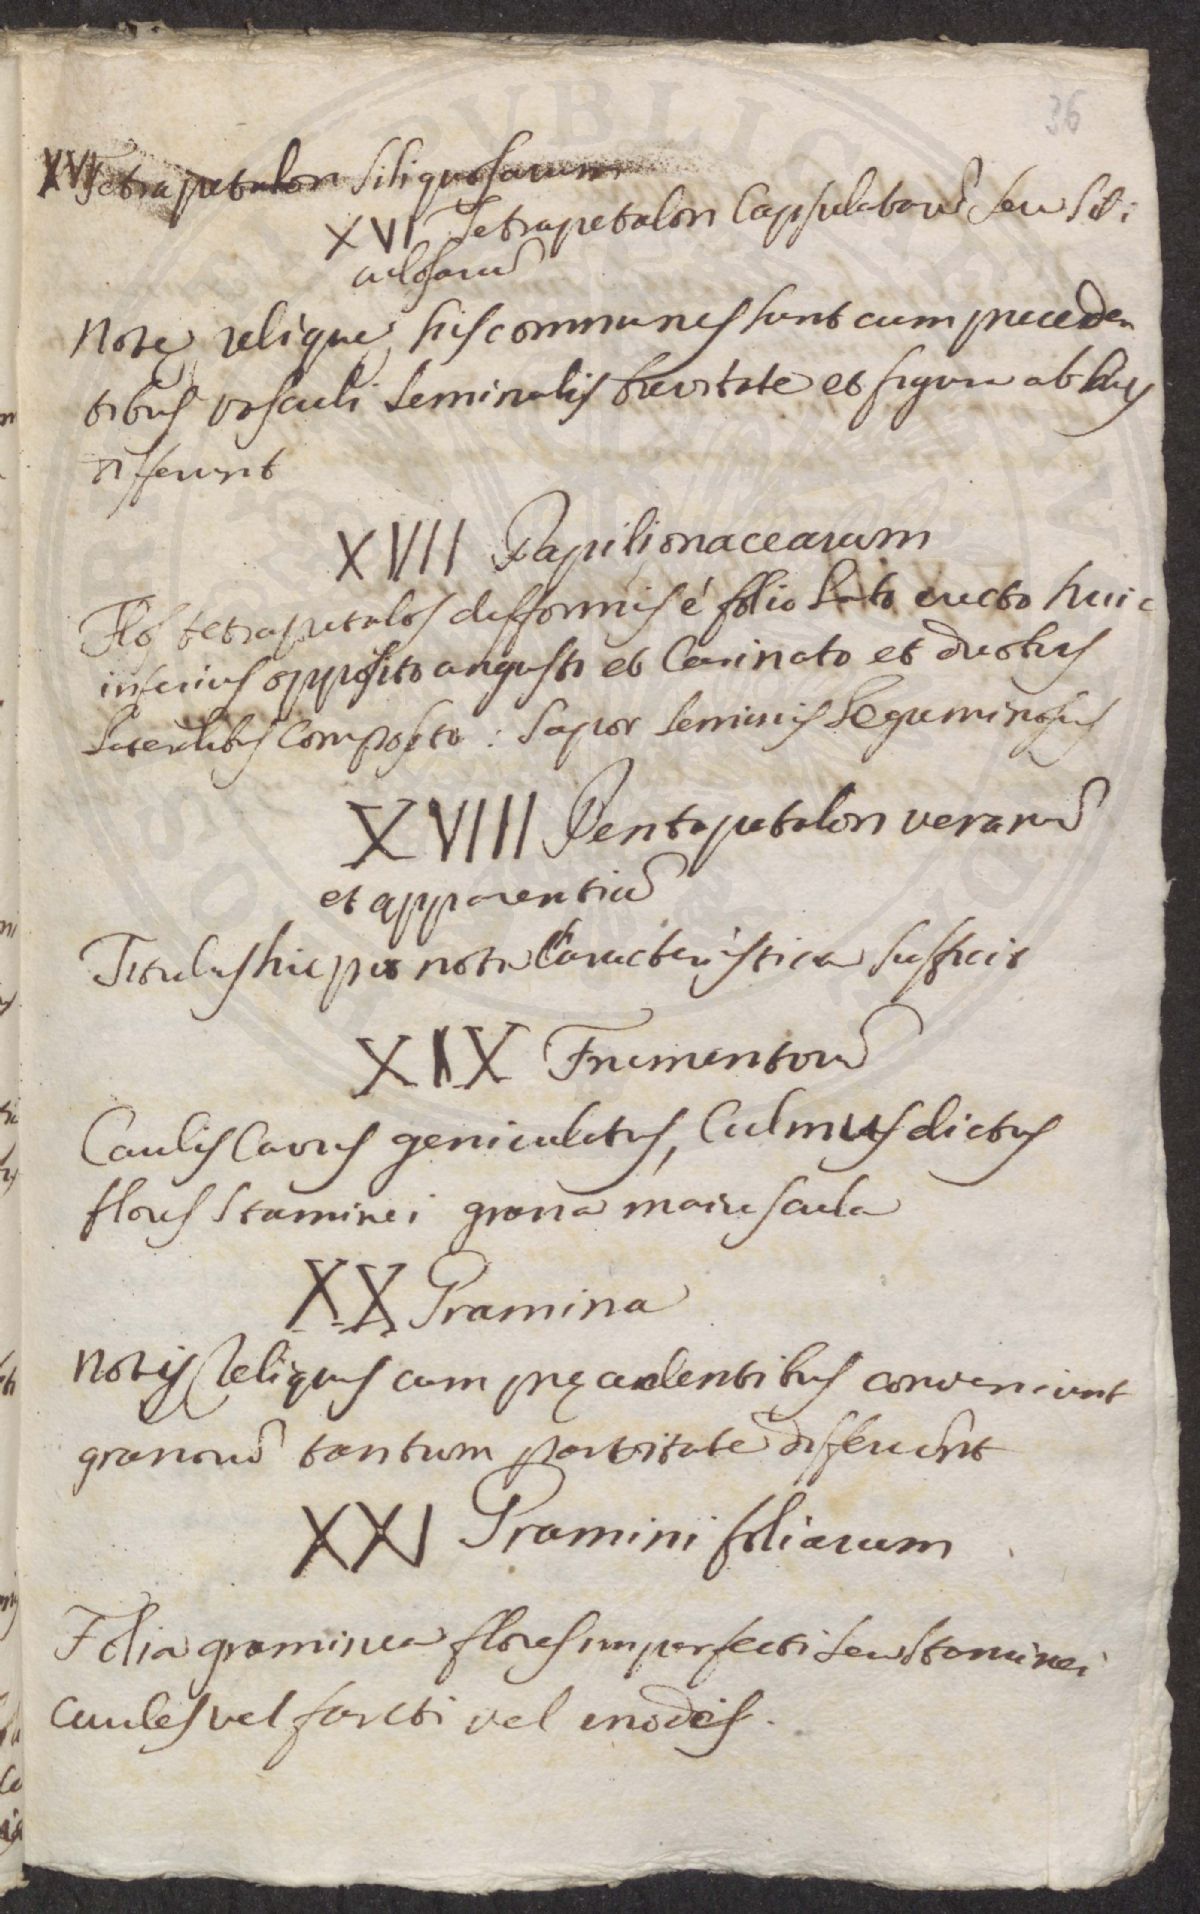 36
XVI Tetrapetalon siliquosarum
XVI Tetrapetalon Capsulatarũ seu Sili
culosarũ
Notę reliquę his communes sunt cum preceden
tibus vasculi seminalis brevitate et figura ab his
differunt
XVII Papilionacearum
Flos tetrapetalos difformis é folio lato erecto huic
inferius opposito angusto et Carinato et duobus
lateralibus composito: Sapor seminis Leguminosus
XVIII Pentapetalon verarũ
et apparentiũ
Titulus hic pro nota Caracteristica sufficit
XIX Frumentorũ
Caulis Cavus geniculatus, Culmus dictus
flores staminei grana maiuscula
XX Gramina
Notis reliquis cum pręcedentibus conveniunt
granorũ tantum parvitate differunt
XXI Graminifoliarum
Folia graminea flores imperfecti seu staminei
Caules vel farcti vel enodes.